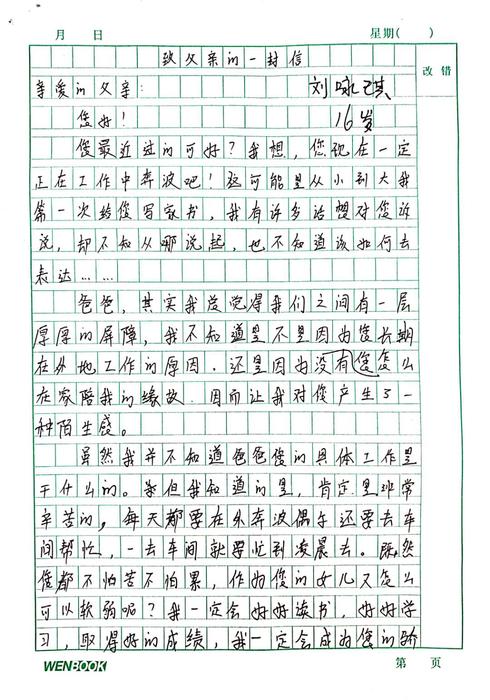 月 日 星期( )
改错
致父亲的一封信
亲爱的父亲: 刘咏琪
您好! 16岁
您最近过的可好?我想,您现在一定
正在工作中奔波吧!这可能是从小到大我
第一次给您写家书,我有许多话想对您诉
说,却不知从哪说起,也不知道该如何去
表达……
爸爸,其实我总觉得我们之间有一层
厚厚的屏障,我不知道是不是因为您长期
在外地工作的原因.还是因为没有您怎么
在家陪我的缘故.因而让我对您产生了一
种陌生感。
虽然我并不知道爸爸您的具体工作是
干什么的。但我知道的是,肯定是非常
辛苦的,每天都要在外奔波偶尔还要去车
间帮忙,一去车间就要忙到凌晨去。既然
您都不怕苦不怕累,作为您的女儿又怎么
可以软弱呢?我一定会好好读书,好好学
习,取得好的成绩,我一定会成为您的骄
WENBOOK 第 页